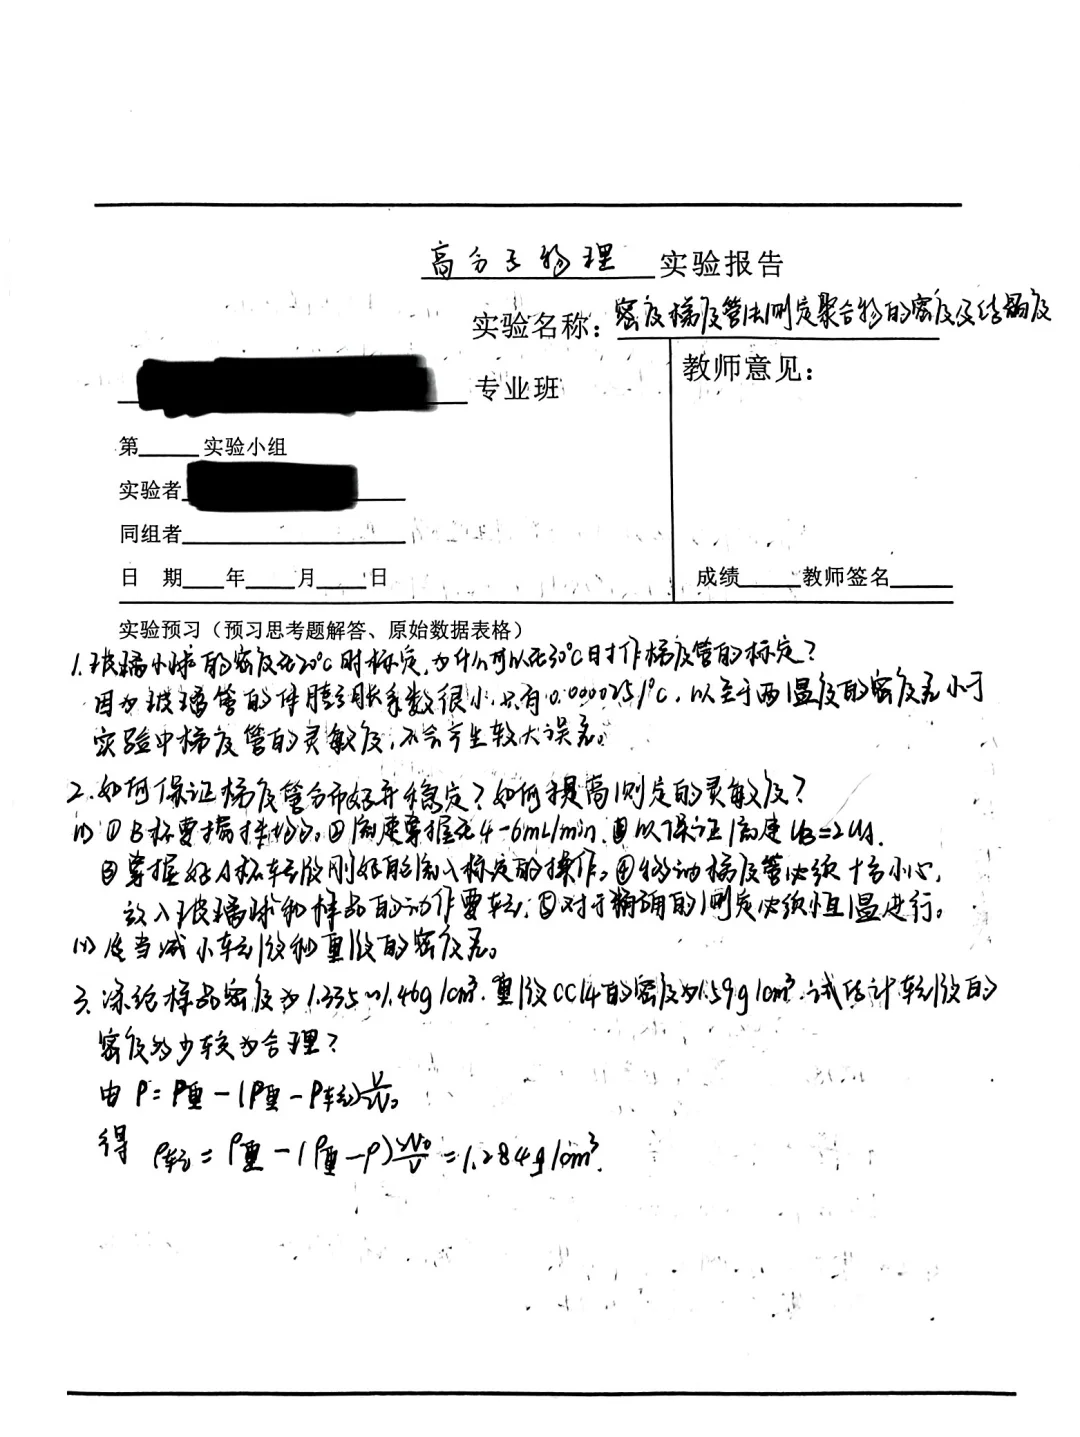 高分子物理 实验报告
实验名称：密度梯度管法测定聚合物的密度及结晶度
专业班
教师意见：
第 实验小组
实验者
同组者
日 期 年 月 日
成绩 教师签名
实验预习（预习思考题解答、原始数据表格）
1.玻璃小球的密度在20℃时标定,为什么可以在30℃时作梯度管的标定?
因为玻璃管的体膨胀系数很小,只有0.000025/℃,以至于两温度的密度差小于
实验中梯度管的灵敏度,不会产生较大误差。
2.如何保证梯度管分布好并稳定?如何提高测定的灵敏度?
(1)①B杯要搅拌均匀。②流速掌握在4-6mL/min,以保证流速υB=2υA.
③掌握好A杯轻液刚好能流入标定的操作。④移动梯度管必须十分小心,
放入玻璃球和样品的动作要轻;⑤对于精确的测定必须恒温进行。
(1)适当减小轻液和重液的密度差。
3.涤纶样品密度为1.335~1.46g/cm³.重液CCl4的密度为1.59g/cm³.试估计轻液的
密度为多少较为合理?
由ρ=ρ重-(ρ重-ρ轻)V/2V₀
得 ρ轻=ρ重-(ρ重-ρ)2V₀/V=1.284g/cm³.